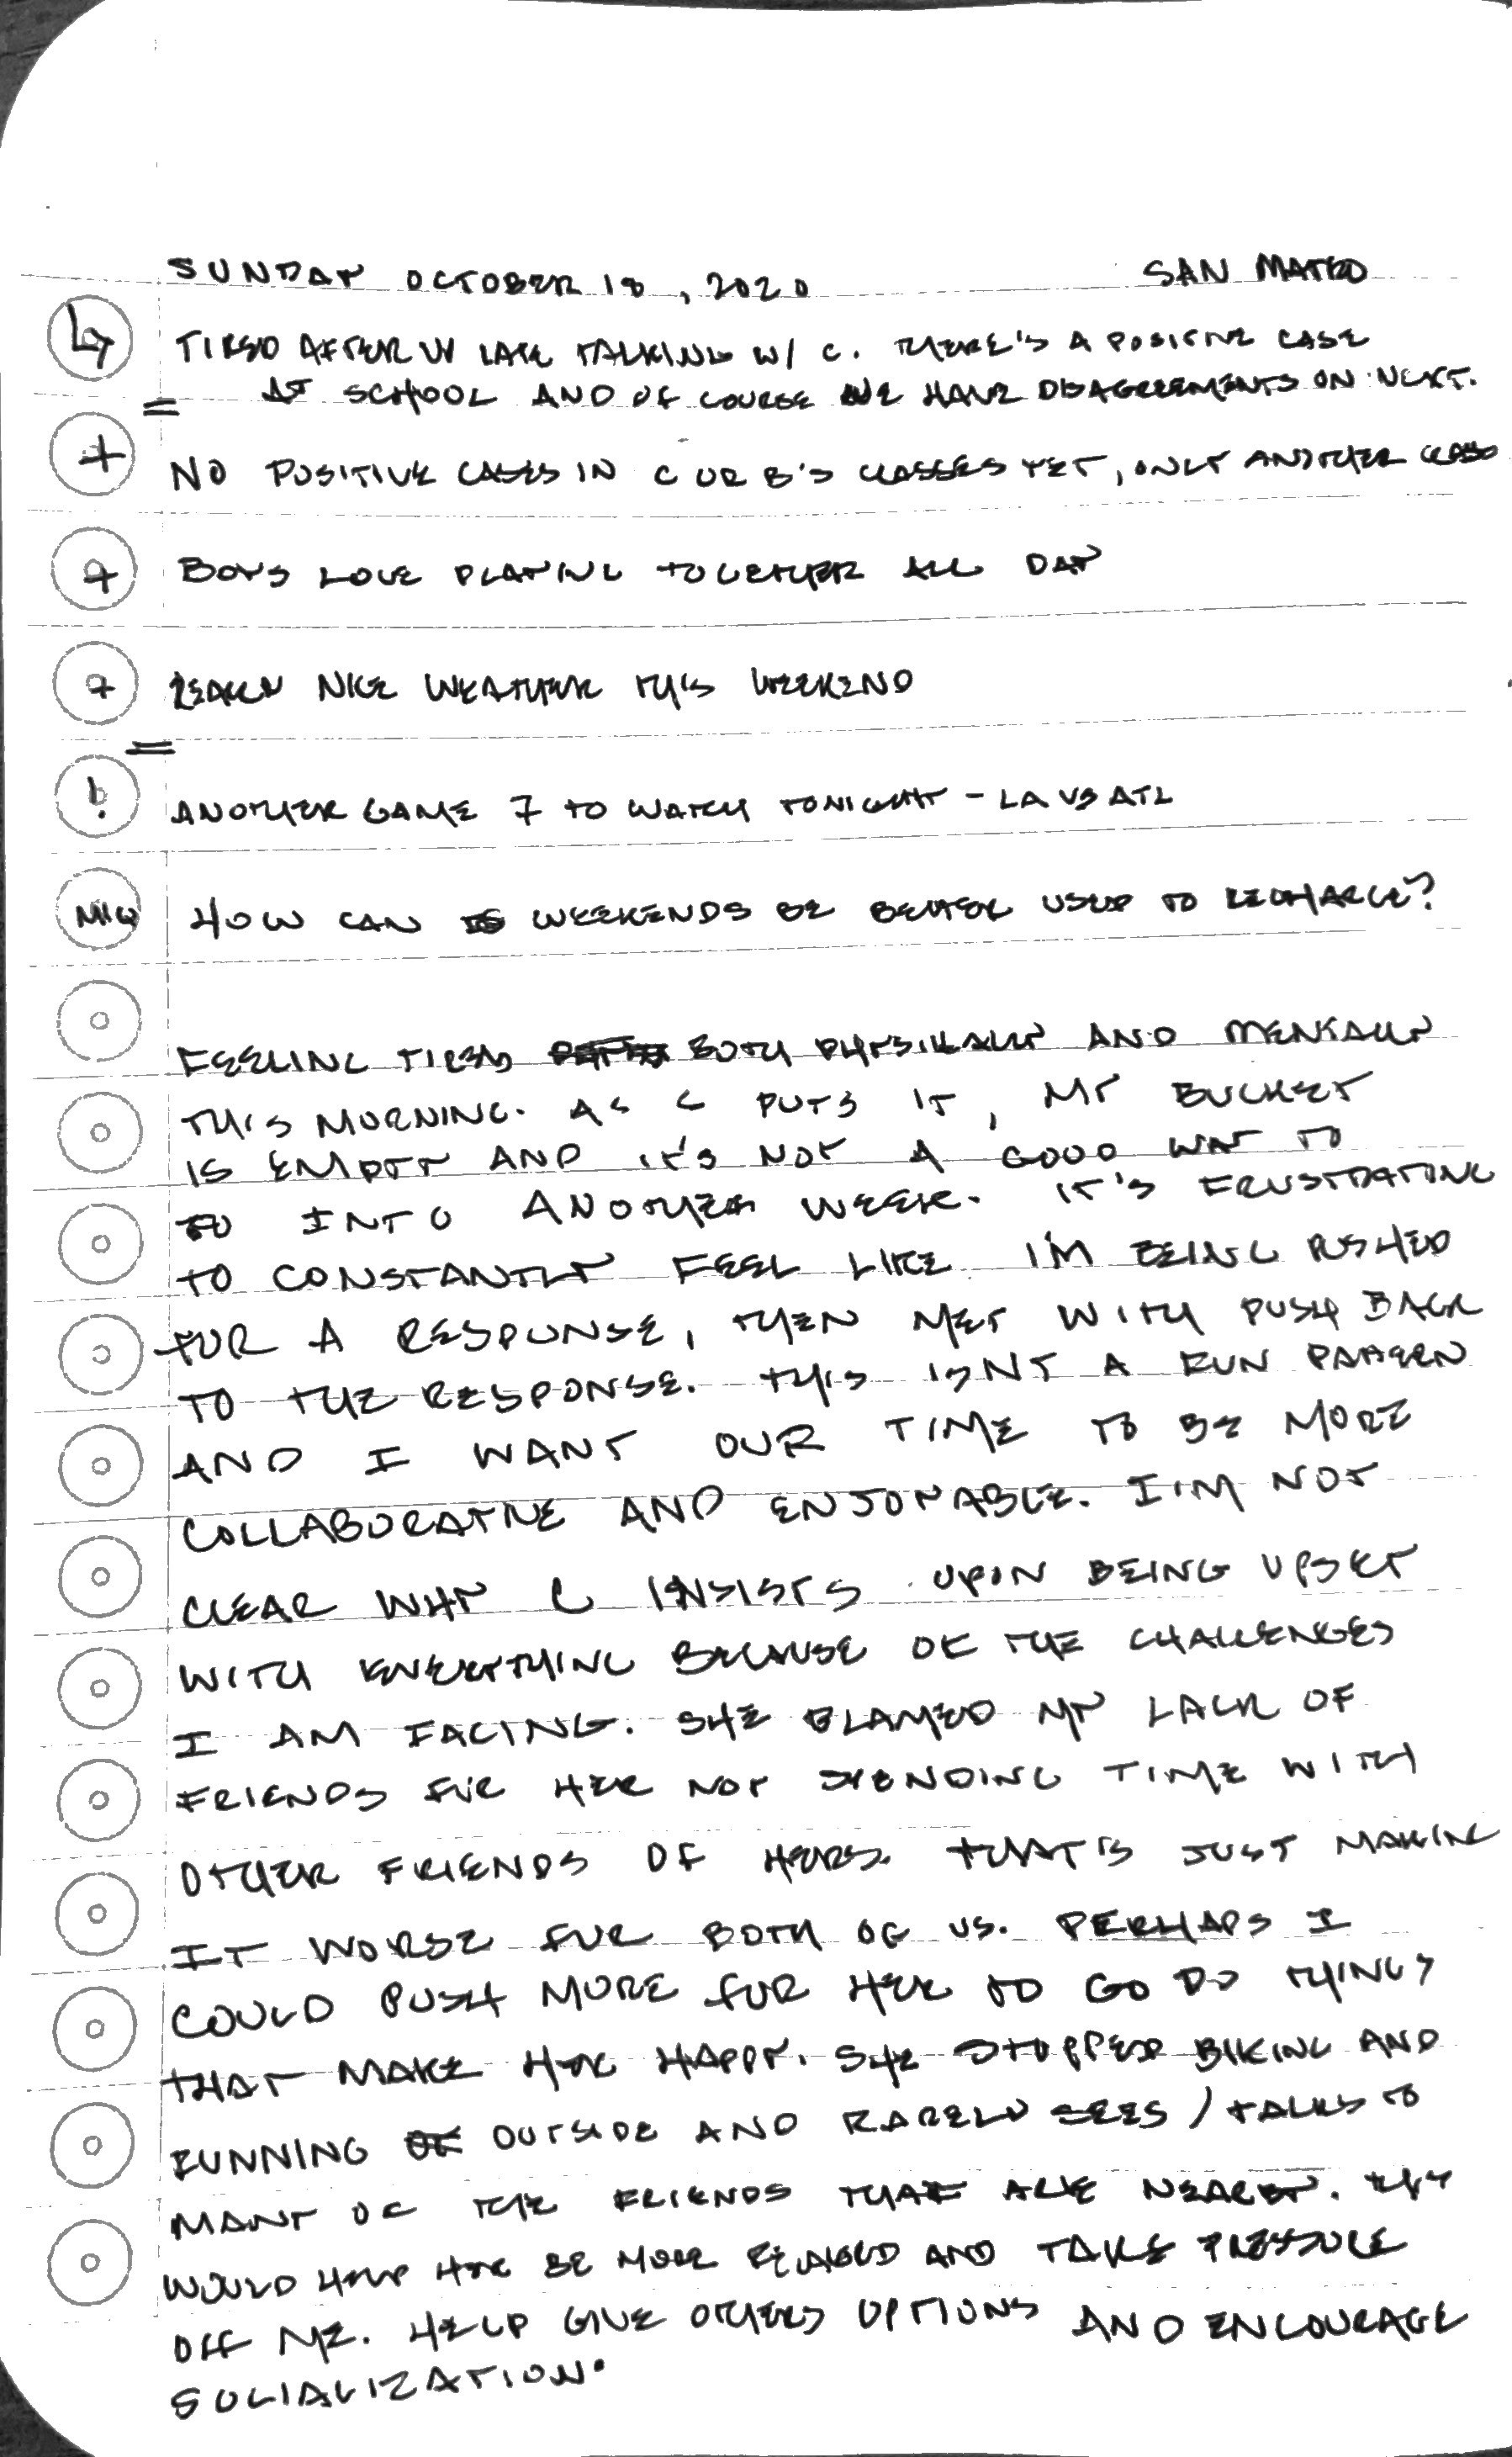 SUNDAY OCTOBER 18, 2020 SAN MATEO
TIRED AFTER UP LATE TALKING W/ C. THERE'S A POSITIVE CASE
AT SCHOOL AND OF COURSE WE HAVE DISAGREEMENTS ON NEXT.
+ NO POSITIVE CASES IN C OR B'S CLASSES YET, ONLY ANOTHER CLASS
+ BOYS LOVE PLAYING TOGETHER ALL DAY
+ REALLY NICE WEATHER THIS WEEKEND
! ANOTHER GAME 7 TO WATCH TONIGHT - LA VS ATL
MIQ HOW CAN WEEKENDS BE BETTER USED TO RECHARGE?
FEELING TIRED BOTH PHYSICALLY AND MENTALLY
THIS MORNING. AS C PUTS IT, MY BUCKET
IS EMPTY AND IT'S NOT A GOOD WAY TO
INTO ANOTHER WEEK. IT'S FRUSTRATING
TO CONSTANTLY FEEL LIKE I'M BEING PUSHED
FOR A RESPONSE, THEN MET WITH PUSH BACK
TO THE RESPONSE. THIS ISN'T A FUN PATTERN
AND I WANT OUR TIME TO BE MORE
COLLABORATIVE AND ENJOYABLE. I'M NOT
CLEAR WHY C INSISTS UPON BEING UPSET
WITH EVERYTHING BECAUSE OF THE CHALLENGES
I AM FACING. SHE BLAMED MY LACK OF
FRIENDS FOR HER NOT SPENDING TIME WITH
OTHER FRIENDS OF HERS. THAT'S JUST MAKING
IT WORSE FOR BOTH OF US. PERHAPS I
COULD PUSH MORE FOR HER TO GO DO THINGS
THAT MAKE HER HAPPY. SHE STOPPED BIKING AND
RUNNING OUTSIDE AND RARELY SEES / TALKS TO
MANY OF THE FRIENDS THAT ARE NEARBY.
WOULD HELP HER BE MORE RELAXED AND TAKE PRESSURE
OFF ME. HELP GIVE OTHERS OPTIONS AND ENCOURAGE
SOCIALIZATION.